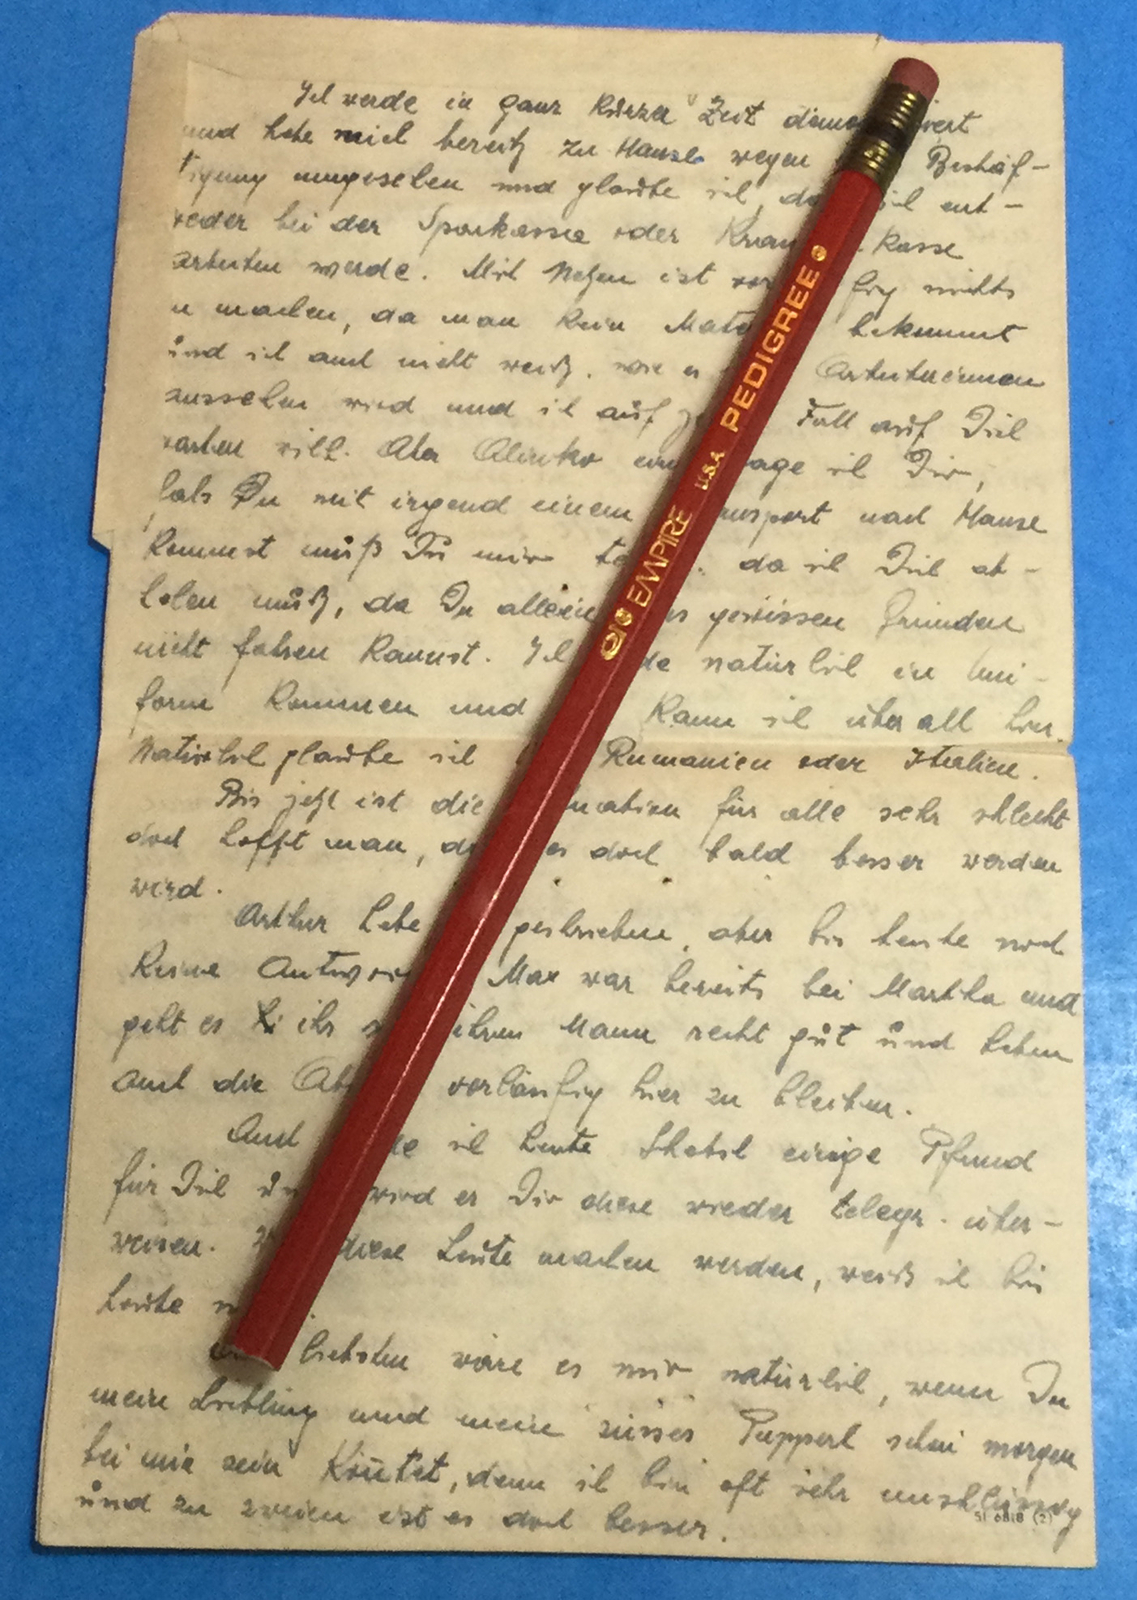 Ich werde in ganz kurzer Zeit
und habe mich bereits zu Hause wegen Beshäf-
tigung umgesehen und glaube ich, ich ent-
weder bei der Sparkasse oder Kasse
arbeiten werde. Mit Nehen ist nichts
zu machen, da man kein bekommt
und ich auch nicht weiß, wie es Arbeiterinnen
aussehen wird und ich auf Fall auf Dich
warten will. Aber eins sage ich Dir,
falls Du mit irgend einem nach Hause
kommst muß Du mir da ich Dich ab-
holen muß, da Du allein gewissen Gründen
nicht fahren kannst. Ich natürlich in Uni-
form kommen und kann ich überall hin.
Natürlich glaube ich Rumänien oder Italien.
Bis jetzt ist die für alle sehr schlecht
doch hofft man, es doch bald besser werden
wird.
Arthur habe geschrieben, aber bis heute noch
keine Max war bereits bei Martha und
geht es ihr ihren Mann recht gut und haben
auch die vorläufig hier zu bleiben.
Auch ich heute einige Pfund
für Dich wird er Dir diese wieder telegr. über-
weisen. diese Leute machen werden, weiß ich bis
heute
liebsten wäre es mir natürlich, wenn Du
mein Liebling und mein süsses Pupperl schon morgen
bei mir sein könntet, denn ich bin oft sehr unschlüssig
und zu zweien ist es doch besser.
EMPIRE U.S.A. PEDIGREE
51 6818 (2)